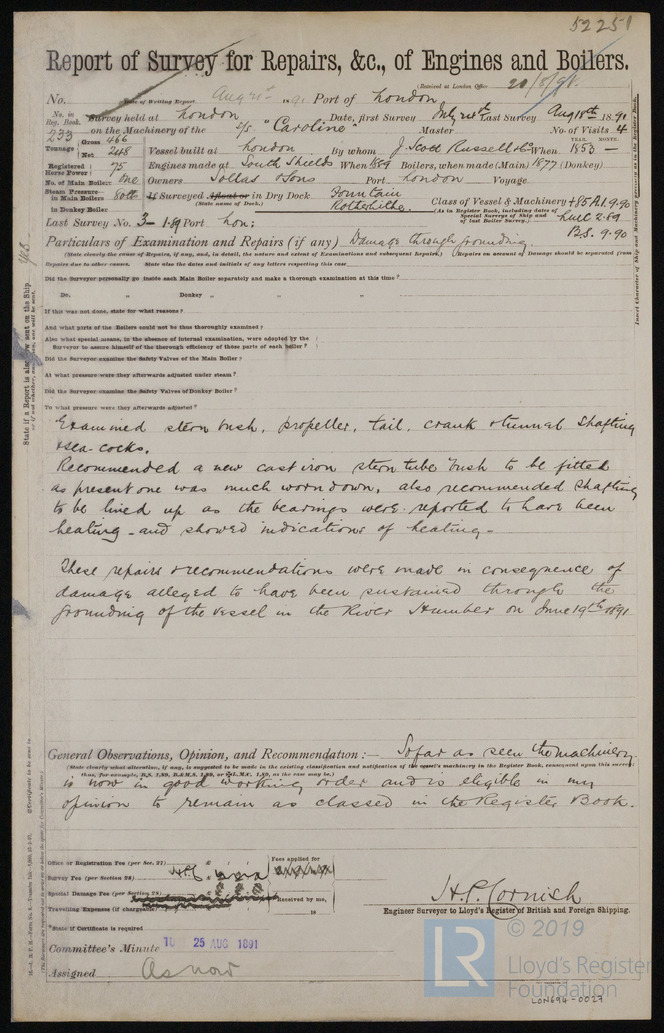 52251
Report of Survey for Repairs, &c., of Engines and Boilers.
(Received at London Office
No. Date of Writing Report Aug 21st 1891 Port of London
No. in Reg. Book. Survey held at London Date, first Survey July 24th Last Survey Aug 18th 1891
233 on the Machinery of the S/S. "Caroline" Master No. of Visits 4
Tonnage Gross 466
Net 248 Vessel built at London By whom J. Scott Russell & Co When 1853 —
YEAR. MONTH.
Registered Horse Power 75 Engines made at South Shields When 1889 Boilers, when made (Main) 1877 (Donkey)
No. of Main Boilers One Owners Sollas & Sons Port London Voyage
Steam Pressure in Main Boilers 80 lbs If Surveyed Afloat or in Dry Dock Fountain
(State name of Dock.) Rotherhithe.
in Donkey Boiler
Class of Vessel & Machinery +85 A1 9.90
(As in Register Book, including dates of Special Surveys of Ship and of last Boiler Survey.)
B.S. 9.90
Last Survey No. 3-1-89 Port Lon:
Particulars of Examination and Repairs (if any) Damage through grounding.
(State clearly the cause of Repairs, if any, and, in detail, the nature and extent of Examinations and subsequent Repairs.) (Repairs on account of Damage should be separated from
Repairs due to other causes. State also the dates and initials of any letters respecting this case
Did the Surveyor personally go inside each Main Boiler separately and make a thorough examination at this time?
Do. „ Donkey „ „ „ „
If this was not done, state for what reasons?
And what parts of the Boilers could not be thus thoroughly examined?
Also what special means, in the absence of internal examination, were adopted by the
Surveyor to assure himself of the thorough efficiency of those parts of each boiler?
Did the Surveyor examine the Safety Valves of the Main Boiler?
At what pressure were they afterwards adjusted under steam?
Did the Surveyor examine the Safety Valves of Donkey Boiler?
To what pressure were they afterwards adjusted?
Examined stern bush, propeller, tail, crank & tunnel Shafting
& sea-cocks.
Recommended a new cast iron stern tube bush to be fitted
as present one was much worn down, also recommended Shafting
to be lined up as the bearings were reported to have been
heating - and showed indications of heating -
These repairs & recommendations were made in consequence of
damage alleged to have been sustained through the
grounding of the vessel in the River Humber on June 19th 1891
General Observations, Opinion, and Recommendation :— So far as seen the machinery
(State clearly what alteration, if any, is suggested to be made in the existing classification and notification of the vessel's machinery in the Register Book, consequent upon this survey
thus, for example, B.S. 1,89, B.& M.S. 1,89, or L.M.C. 1,89, as the case may be.)
is now in good working order and is eligible in my
opinion to remain as classed in the Register Book.
Office or Registration Fee (per Sec. 27) £ : : Fees applied for
Survey Fee (per Section 28) £
Special Damage Fee (per Section 28) £ Received by me,
Travelling Expenses (if chargeable) £ 18
*State if Certificate is required
H. P. Cornish
Engineer Surveyor to Lloyd's Register of British and Foreign Shipping.
Committee's Minute TUES 25 AUG 1891
Assigned As now
© 2019
LR
Lloyd's Register
Foundation
LON694-0027
State if a Report is also now sent on the Ship.